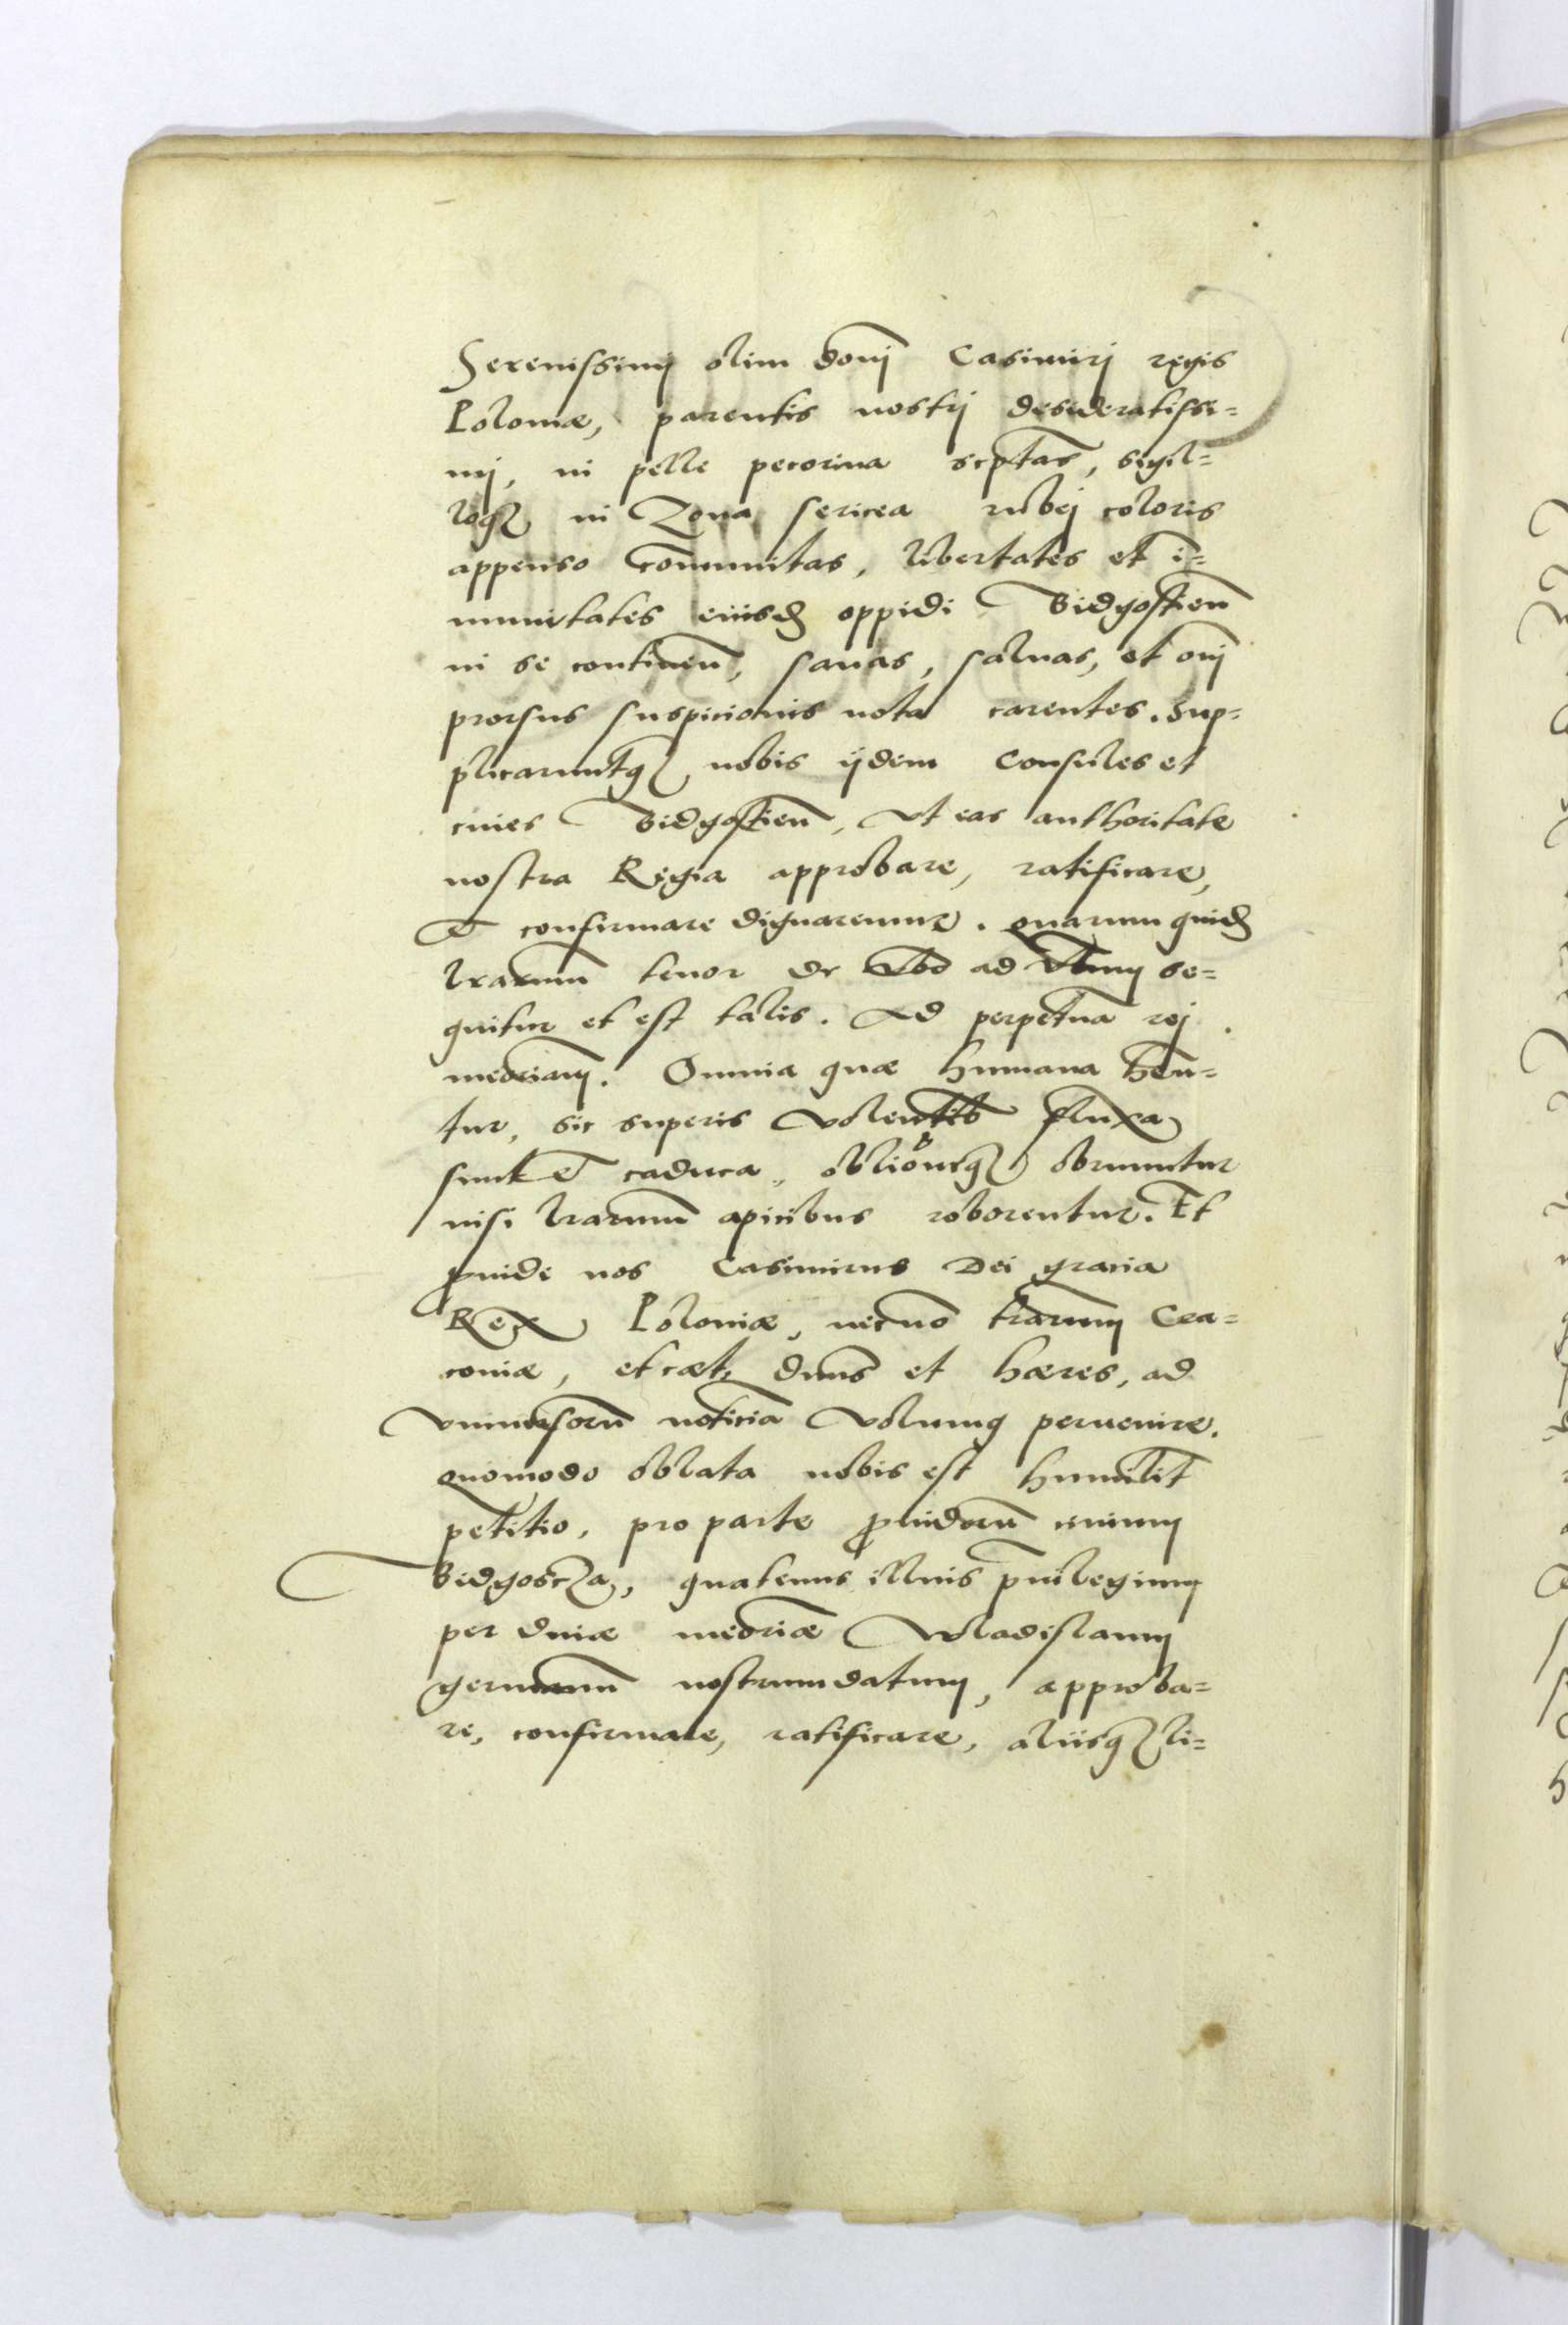 Serenissimj olim dōnj Casimirj regis
Poloniæ, parentis nostrj desideratissi=
mj, in pelle pecorina scptas̄, sigil=
loqꝫ in Zona sericea rubej coloris
appenso cōmunitas, libertates et ī=
munitates eiusdē oppidi Bidgostieñ
in se contineñ, sanas, saluas, et oῑnj
prorsus suspicionis nota carentes. Sup=
plicaruntqꝫ nobis ijdem Consules et
ciues Bidgostieñ, vt eas authoritate
nostra Regia approbare, ratificare,
et confirmare dignaremur. Quarum quidē
lrarum̄ tenor de vbo ad vbum se=
quitur et est talis. Ad perpetuā rej
mēoriam. Omnia quæ humana hēn=
tur, sic superis volentib fluxa
sunt et caduca, oblioneqꝫ obruuntur
nisi lrarum̄ apicibus roborentur. Et
proinde nos Casimirus Dei gracia
Rex Poloniæ, necno trarum Cra=
coniæ, etcæt. dnus et hæres, ad
vniuersorū noticiā volumq peruenire.
Quomodo oblata nobis est humilit
petitio, pro parte ꝓuidorū ciuium
Bidgoscza, quatenus illius pͥuilegium
per diuæ mēoriæ Wladislaum
germanum nostrum datum, approba=
re, confirmare, ratificare, aliisqꝫ li=